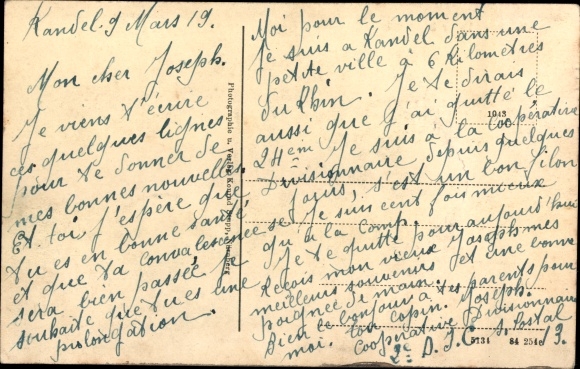 Kandel. 9 Mars 19.
Mon cher Joseph.
Je viens t'écrire
ces quelques lignes
pour te donner de
mes bonnes nouvelles.
Et toi j'espère que
tu es en bonne santé
et que ta convalescence se
sera bien passée je
souhaite que tu es une
prolongation.
Moi pour le moment
je suis a Kandel dans une
petite ville à 6 kilomètres
du Rhin. Je te dirais
aussi que j'ai quitté le
24em Je suis à la Coopérative
Divisionnaire depuis quelques
jours, s'est un bon filon
je suis cent fois mieux
qu'a la Comp.
Je te quitte pour aujourd'hui
Reçois mon vieux Joseph mes
meilleurs souvenirs et une bonne
poignée de main.
Bien le bonjour à tes parents pour
moi. ton copin. Joseph.
Coopérative Divisionnaire
2e D. I. C s. Postal 13.
Photographie u. Verlag
1943
5134 84 254